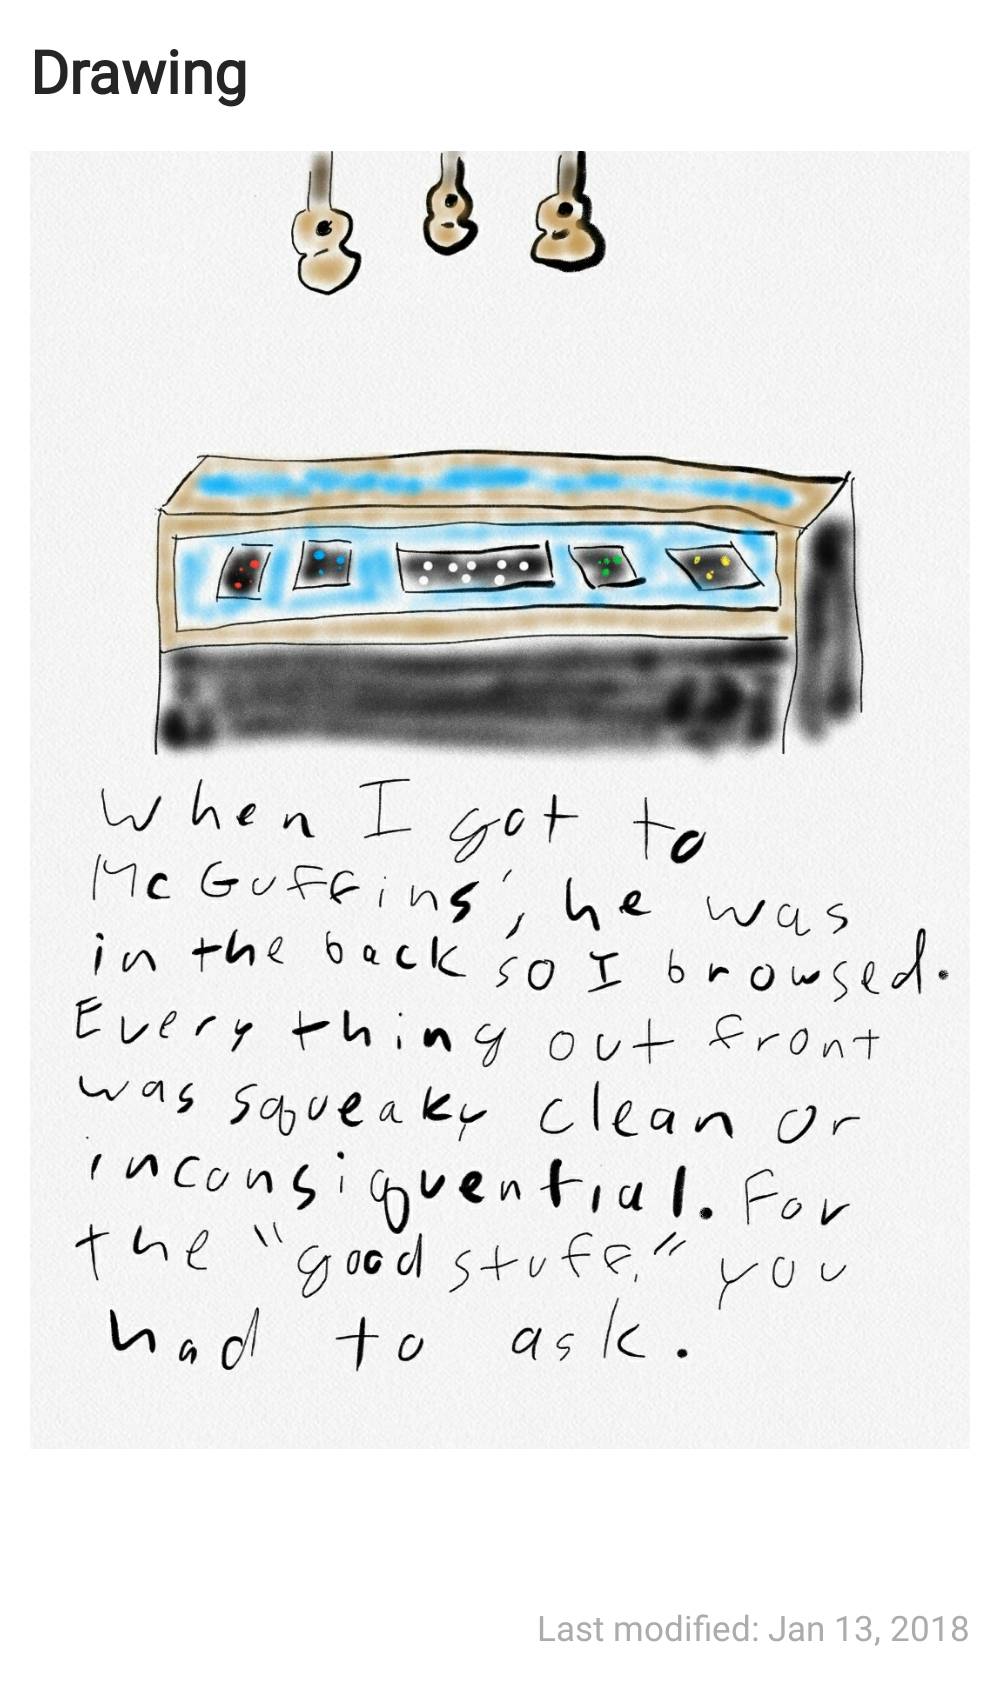 Drawing
When I got to
McGuffins', he was
in the back so I browsed.
Everything out front
was squeaky clean or
inconsiquential. For
the "good stuff," you
had to ask.
Last modified: Jan 13, 2018